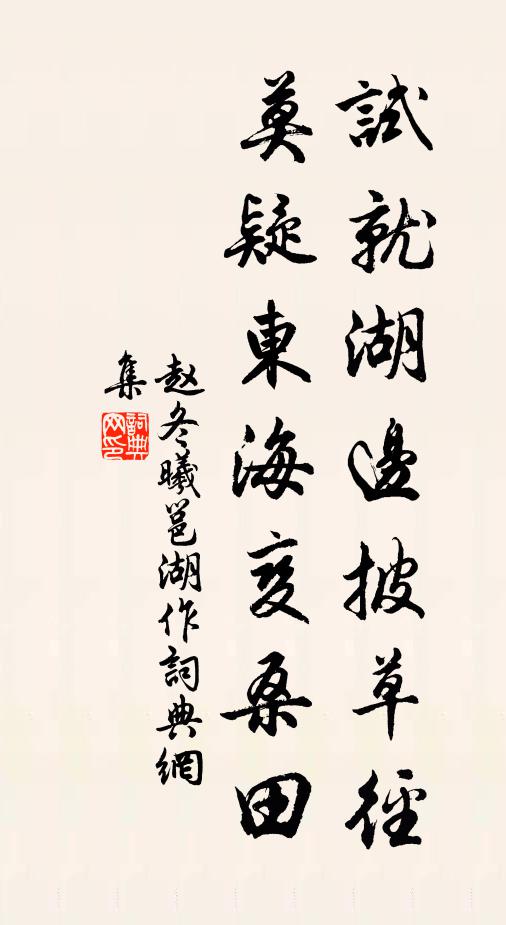 試就湖邊披草徑
莫疑東海变桑田
赵冬曦邕湖作詞典網
集
詞典
网印